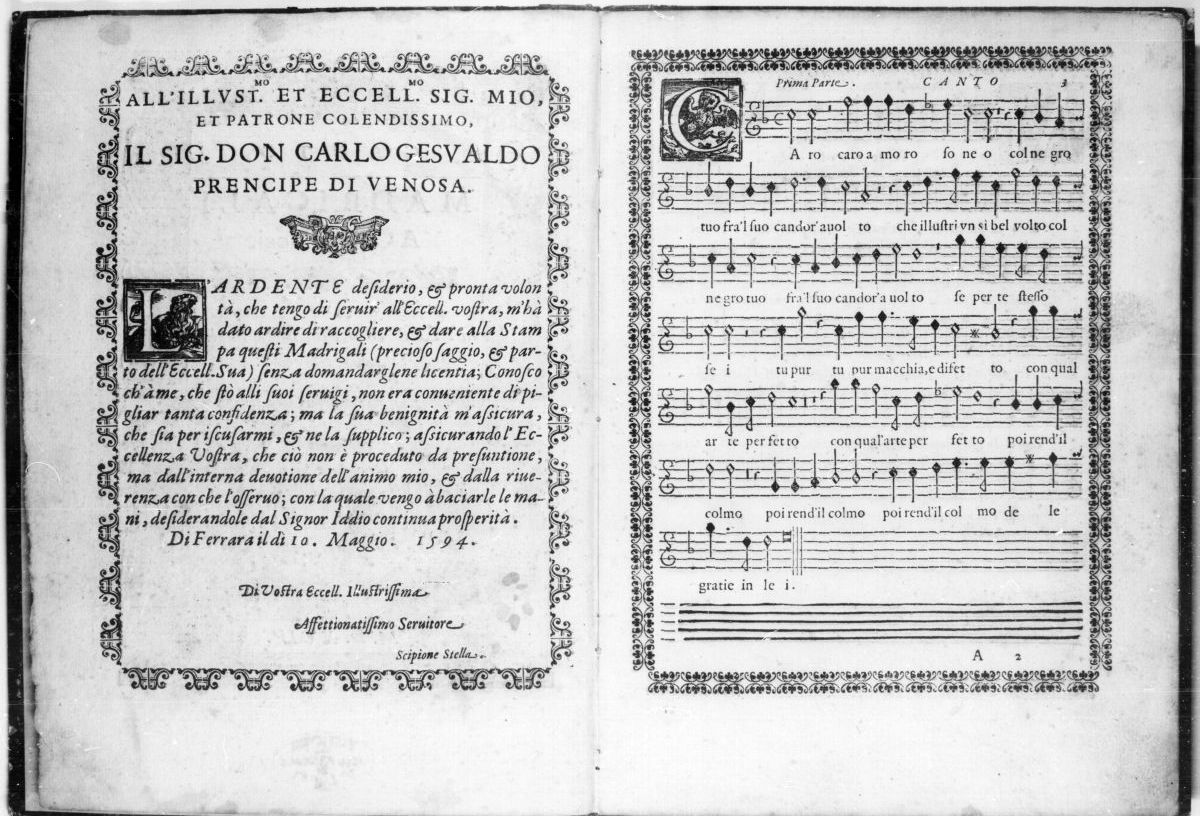 ALL'ILLVST.MO ET ECCELL.MO SIG. MIO,
ET PATRONE COLENDISSIMO,
IL SIG. DON CARLO GESVALDO
PRENCIPE DI VENOSA.
L'ARDENTE desiderio, & pronta volon
tà, che tengo di seruir' all'Eccell. vostra, m'hà
dato ardire di raccogliere, & dare alla Stam
pa questi Madrigali (precioso saggio, & par-
to dell'Eccell. Sua) senza domandarglene licentia; Conosco
ch'à me, che stò alli suoi seruigi, non era conueniente di pi-
gliar tanta confidenza; ma la sua benignità m'assicura,
che sia per iscusarmi, & ne la supplico; assicurando l'Ec-
cellenza Vostra, che ciò non è proceduto da presuntione,
ma dall'interna deuotione dell'animo mio, & dalla riue-
renza con che l'osseruo; con la quale vengo à baciarle le ma-
ni, desiderandole dal Signor Iddio continua prosperità.
Di Ferrara il dì 10. Maggio. 1594.
Di Vostra Eccell. Illustrissima
Affettionatissimo Seruitore
Scipione Stella.
Prima Parte. CANTO
CA ro caro a mo ro so ne o col ne gro
tuo fra'l suo candor' auol to che illustri vn si bel volto col
ne gro tuo fra'l suo candor'a uol to se per te stesso
se i tu pur tu pur macchia, e difet to con qual
ar te per fetto con qual'arte per fet to poi rend'il
colmo poi rend'il colmo poi rend'il col mo de le
gratie in le i.
A 2